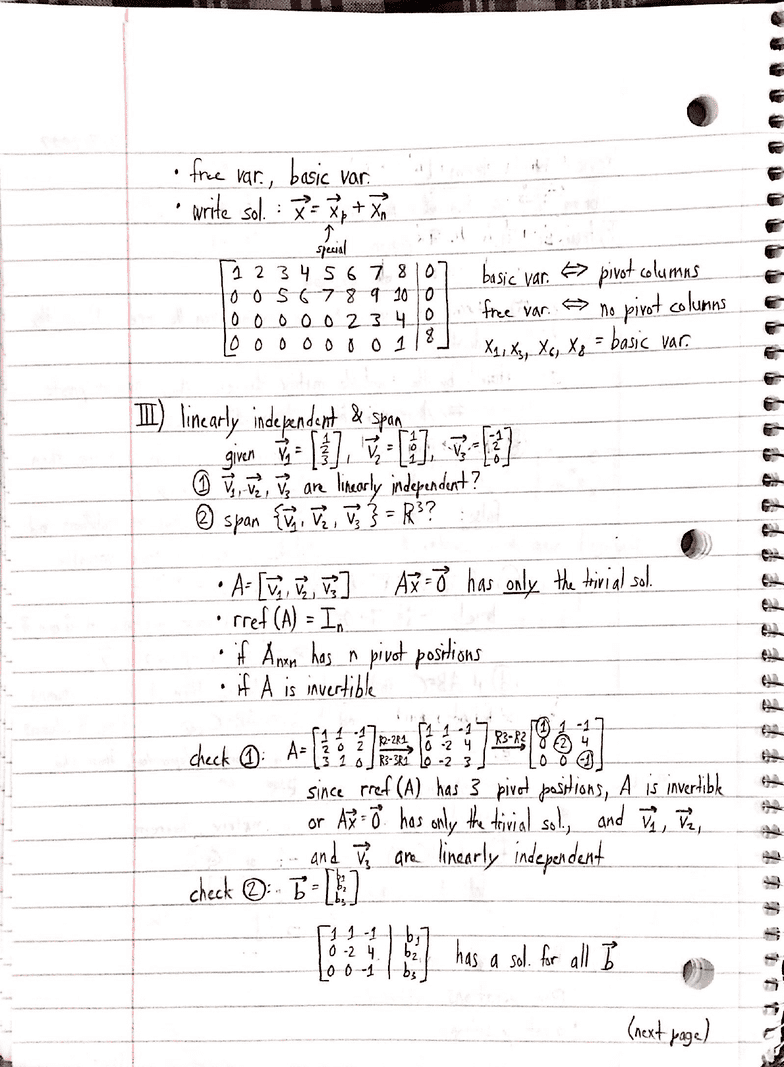 • free var., basic var.
• write sol. : x⃗ = x⃗p + x⃗n
↑
special
[1 2 3 4 5 6 7 8 | 0] basic var. ⇔ pivot columns
[0 0 5 6 7 8 9 10 | 0] free var. ⇔ no pivot columns
[0 0 0 0 0 2 3 4 | 0]
[0 0 0 0 0 0 0 1 | 8] x1, x3, x6, x8 = basic var.
III) linearly independent & span
given v⃗1 = [1 2 3], v⃗2 = [1 0 1], v⃗3 = [-1 2 0]
① v⃗1, v⃗2, v⃗3 are linearly independent?
② span {v⃗1, v⃗2, v⃗3} = R³?
• A = [v⃗1, v⃗2, v⃗3] Ax⃗ = 0⃗ has only the trivial sol.
• rref(A) = In
• if Anxn has n pivot positions
• if A is invertible
check ①: A = [1 1 -1; 2 0 2; 3 1 0] R2-2R1 R3-3R1 → [1 1 -1; 0 -2 4; 0 -2 3] R3-R2 → [① 1 -1; 0 (-2) 4; 0 0 (-1)]
since rref(A) has 3 pivot positions, A is invertible
or Ax⃗ = 0⃗ has only the trivial sol., and v⃗1, v⃗2,
and v⃗3 are linearly independent
check ②: b⃗ = [b1 b2 b3]
[1 1 -1 | b1]
[0 -2 4 | b2] has a sol. for all b⃗
[0 0 -1 | b3]
(next page)